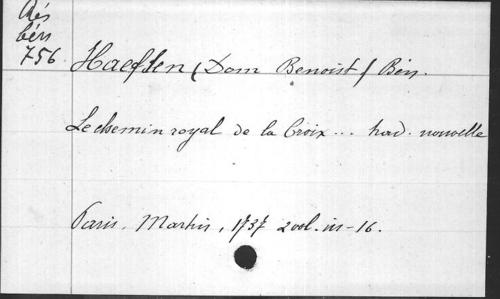 Rés
bén
756
Haeften (Dom Benoist) Bén.
Le chemin royal de la Croix... trad. nouvelle
Paris, Martin, 1737 2 vol. in-16.